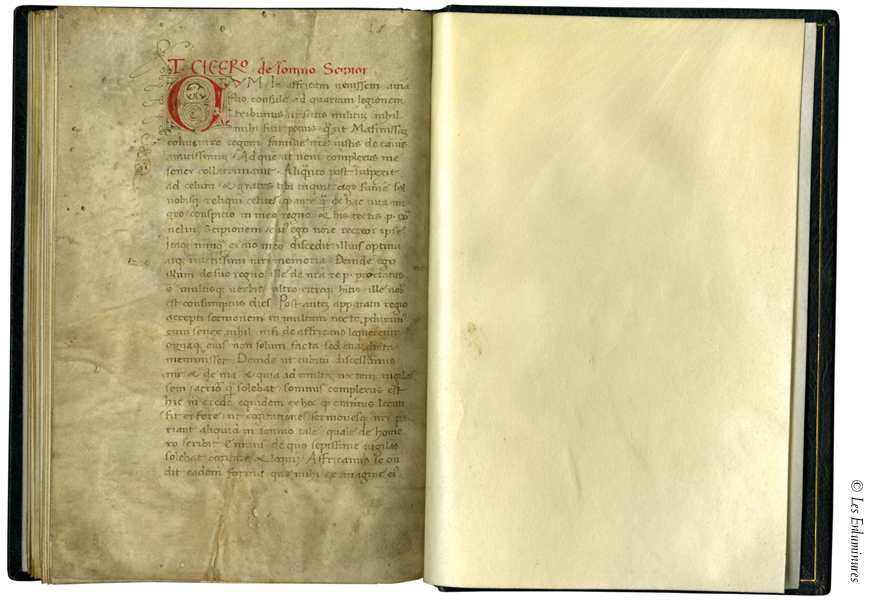 T. CICERO de somno Scipior
CVM In affricam venissem ama
lio consule ad quartam legionem
tribunus ut scitis militum nihil
mihi fuit potius qͣ ut Masinissaꝫ
regem familie nr̄e iustis de causis
amicissimuꝫ. Ad quē ut veni complexus me
senex collacrimavit. Aliqͣnto post suspexit
ad celum & grates tibi inquit ego summe sol
nobisqꝫ reliqui celites quante qͣ ex hac vita mi
gro conspicio in meo regno & his tectis p. cor̄
nelium Scipionem cuiꝰ ego noīe recreor ipse
Itaqꝫ nunqͣ ex aīo meo discedit illius optimi
atqꝫ invictissimi viri memoria. Deinde ego
illum de suo regno ille de nr̄a re p. pcōctatus
ē multisqꝫ verbis ultro citroqꝫ hitis ille nob
est consumptus dies. Post anteꝫ apparatu regio
accepti sermonem in multam noctē pduximꝰ
cum senex nihil nisi de affricano loqueretur
omīaqꝫ eius non solum facta sed etiaꝫ dicta
meminisset. Deinde ut cubitū discessimus
me & de via & quia ad multā noctem vigilas
sem arctior qͣ solebat somnus complexus est
hic mi credo equidem ex hoc qͩ eramus locuti
fit eī fere ut cogitationes sermonesqꝫ nr̄i pa
riant aliquid in somno tale quale de home
ro scribit Ennius de quo sepissime vigilās
solebat cogitare & loqui Affricanus se on
dit eadem forma que mihi ex imagine eiꝰ
© Les Enluminures